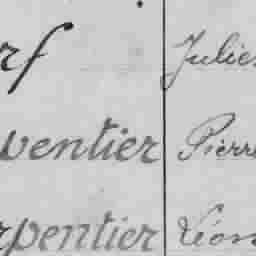 rf Julien
ventier Pierre
rpentier Léon